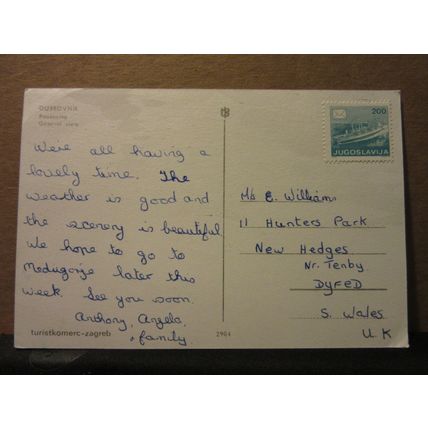 DUBROVNIK
Panorama
General view
We're all having a
lovely time. The
weather is good and
the scenery is beautiful
We hope to go to
Medugorje later this
week. See you soon.
Anthony, Angela,
+ family.
turistkomerc-zagreb
2984
200
JUGOSLAVIJA
E. Williams
11 Hunters Park
New Hedges
Nr. Tenby
DYFED
S. Wales
U.K